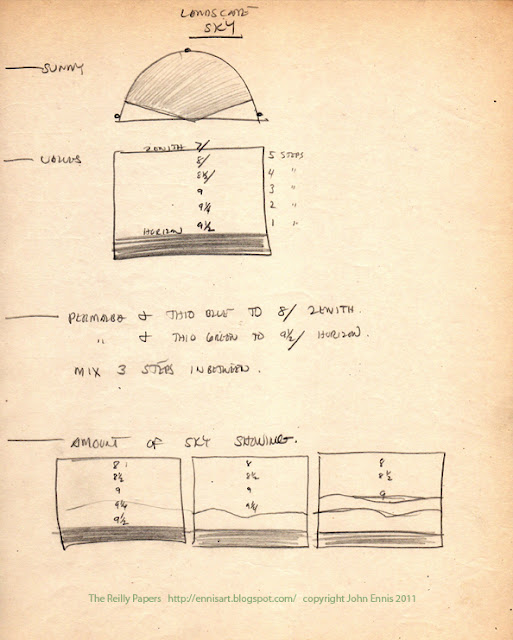 LANDSCAPE
SKY
SUNNY
VALUES
ZENITH 7/
8/ 5 STEPS
8½/ 4 "
9 3 "
9¼ 2 "
HORIZON 9½ 1 "
PERMALBA + THIO BLUE TO 8/ ZENITH.
" + THIO GREEN TO 9½/ HORIZON.
MIX 3 STEPS IN BETWEEN.
AMOUNT OF SKY SHOWING.
8 8 8
8½ 8½ 8½
9 9 9
9¼ 9¼
9½
The Reilly Papers http://ennisart.blogspot.com/ copyright John Ennis 2011